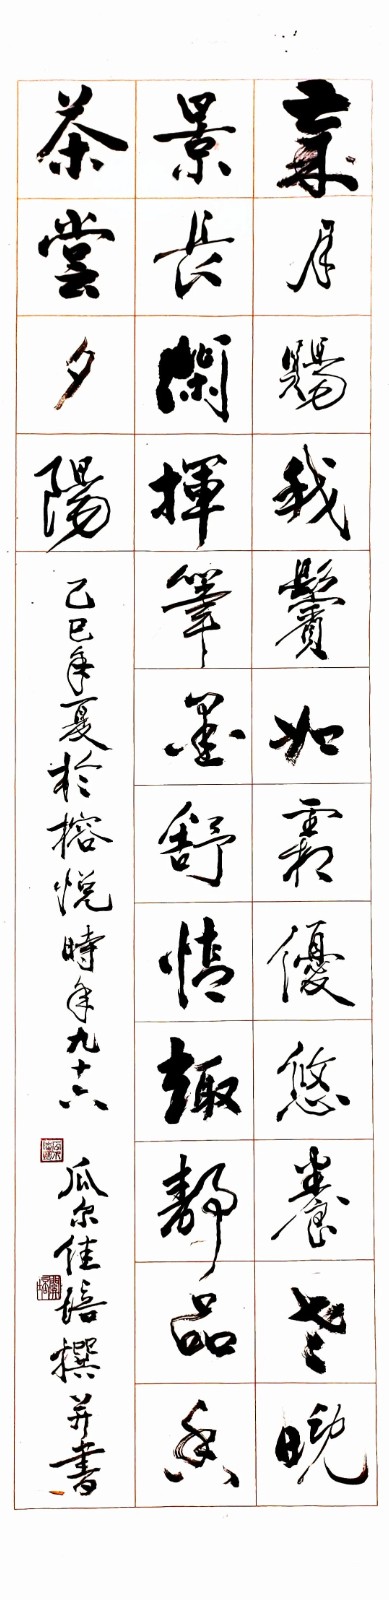 歲月賜我鬢如霜優悠養老晚
景長閑揮筆墨舒情趣靜品香
茶嘗夕陽
乙巳年夏於榕悅時年九十六 瓜尔佳培撰并書